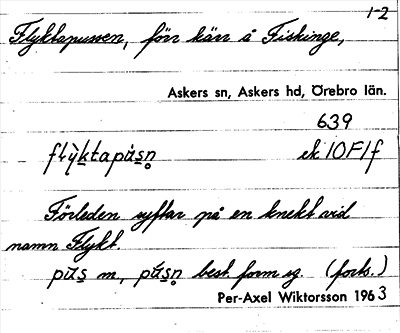 1-2
Flyktapussen, förr kärr å Fiskinge,
Askers sn, Askers hd, Örebro län.
639
ek 10F1f
Förleden syftar på en knekt vid
namn Flykt.
m, best form sg. (forts.)
Per-Axel Wiktorsson 1963